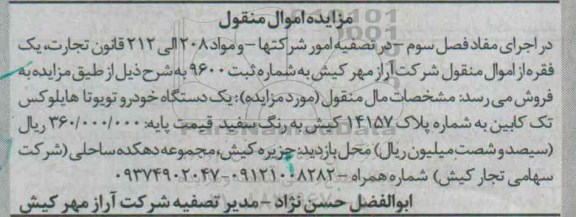 مزایده اموال منقول
در اجرای مفاد فصل سوم - در تصفیه امور شرکتها - و مواد ۲۰۸ الی ۲۱۲ قانون تجارت، یک
فقره از اموال منقول شرکت آراز مهر کیش به شماره ثبت ۹۶۰۰ به شرح ذیل از طیق مزایده به
فروش می رسد: مشخصات مال منقول (مورد مزایده): یک دستگاه خودرو تویوتا هایلوکس
تک کابین به شماره پلاک ۱۴۱۵۷-کیش به رنگ سفید قیمت پایه: ۳۶۰/۰۰۰/۰۰۰ ریال
(سیصد و شصت میلیون ریال) محل بازدید: جزیره کیش، مجموعه دهکده ساحلی (شرکت
سهامی تجار کیش) شماره همراه - ۰۹۱۲۱۰۰۸۲۸۲-۰۹۳۷۴۹۰۲۰۴۷
ابوالفضل حسن نژاد - مدیر تصفیه شرکت آراز مهر کیش